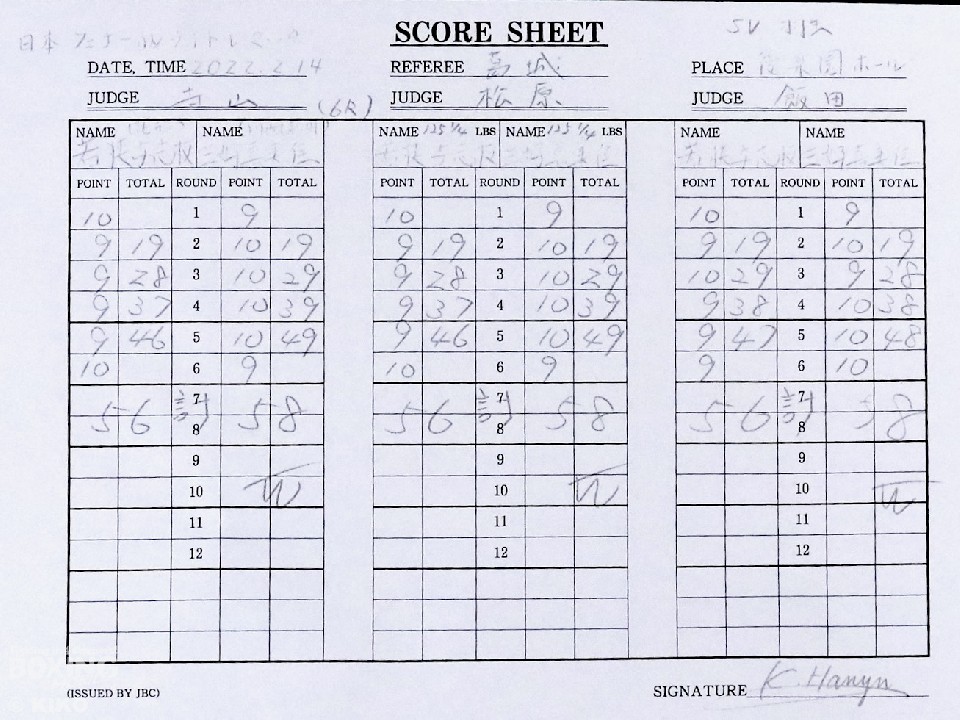 SCORE SHEET
日本
DATE, TIME 2022.2.14 REFEREE 葛城 PLACE 後楽園ホール
JUDGE 寺山 (6R) JUDGE 松原 JUDGE 飯田
NAME NAME NAME 125 1/4 LBS NAME 125 1/4 LBS NAME NAME
POINT TOTAL ROUND POINT TOTAL POINT TOTAL ROUND POINT TOTAL POINT TOTAL ROUND POINT TOTAL
10 1 9 10 1 9 10 1 9
9 19 2 10 19 9 19 2 10 19 9 19 2 10 19
9 28 3 10 29 9 28 3 10 29 10 29 3 9 28
9 37 4 10 39 9 37 4 10 39 9 38 4 10 38
9 46 5 10 49 9 46 5 10 49 9 47 5 10 48
10 6 9 10 6 9 9 6 10
7 7 7
56 計 58 56 計 58 56 計 58
8 8 8
9 9 9
10 10 10
11 11 11
12 12 12
(ISSUED BY JBC) SIGNATURE